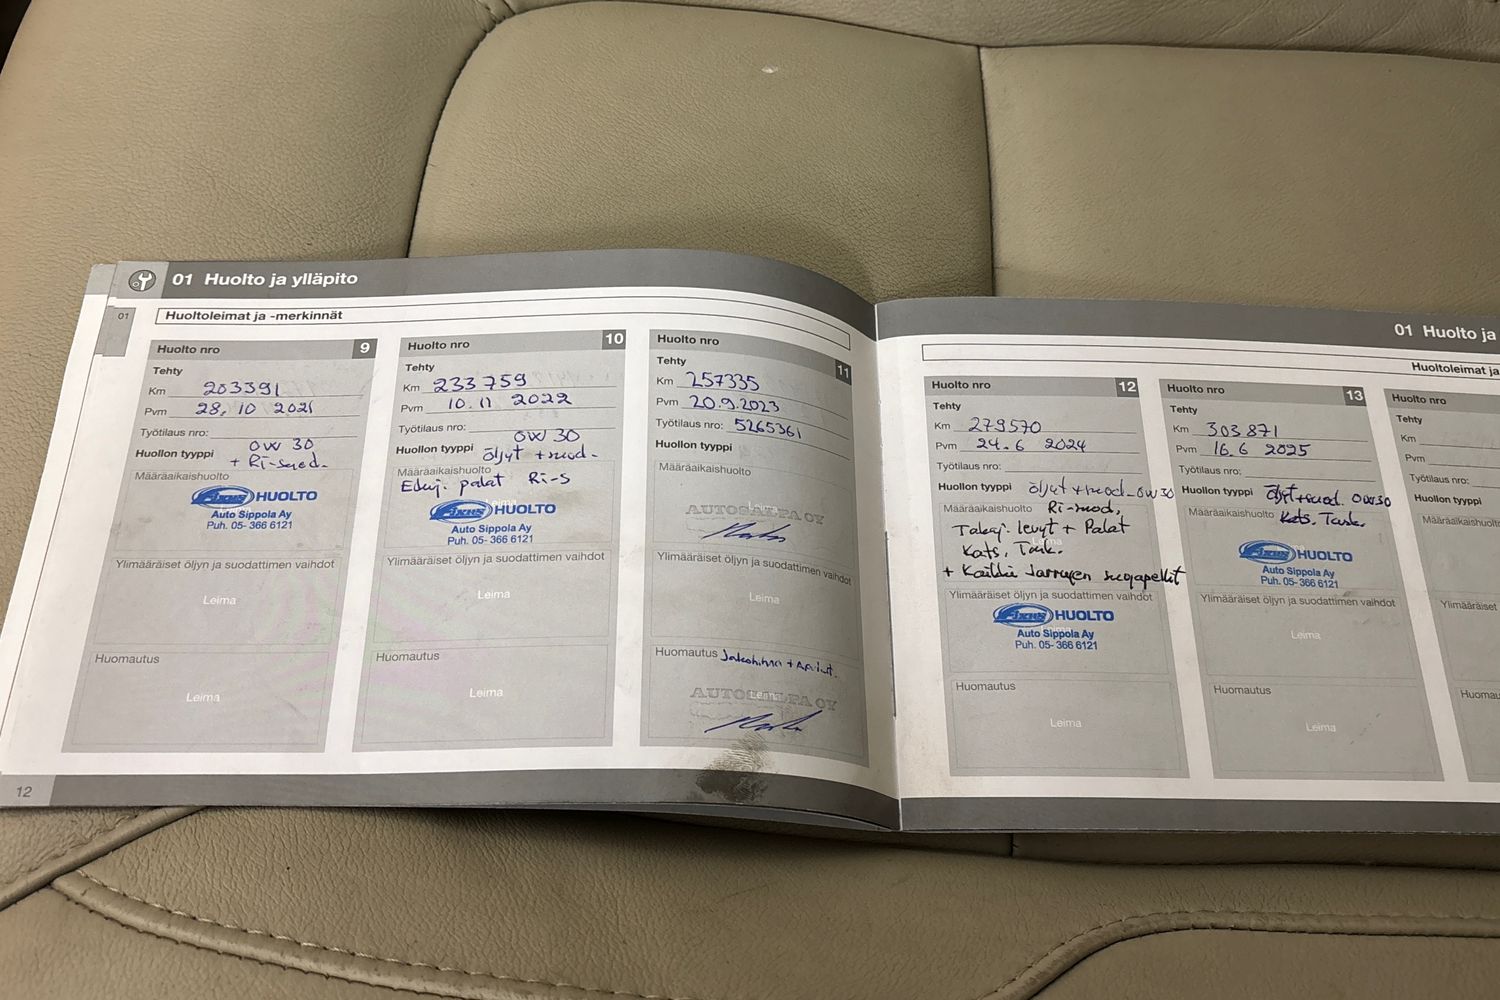 01 Huolto ja ylläpito
01
Huoltoleimat ja -merkinnät
Huolto nro 9
Tehty
Km 203391
Pvm 28.10 2021
Työtilaus nro:
Huollon tyyppi OW 30
+ Ri-suod.
Määräaikaishuolto
Fixus HUOLTO
Auto Sippola Ay
Puh. 05- 366 6121
Ylimääräiset öljyn ja suodattimen vaihdot
Leima
Huomautus
Leima
12
Huolto nro 10
Tehty
Km 233759
Pvm 10.11 2022
Työtilaus nro:
OW 30
Huollon tyyppi öljyt +suod.
Määräaikaishuolto
Etuj. palat Ri-S
Leima
Fixus HUOLTO
Auto Sippola Ay
Puh. 05- 366 6121
Ylimääräiset öljyn ja suodattimen vaihdot
Leima
Huomautus
Leima
Huolto nro 11
Tehty
Km 257335
Pvm 20.9.2023
Työtilaus nro: 5265361
Huollon tyyppi
Määräaikaishuolto
AUTOSALPA OY
Ylimääräiset öljyn ja suodattimen vaihdot
Leima
Huomautus Jakohihna +
AUTOSALPA OY
Leima
01 Huolto ja
Huoltoleimat ja
Huolto nro 12
Tehty
Km 279570
Pvm 24.6 2024
Työtilaus nro:
Huollon tyyppi öljyt +suod. OW30
Määräaikaishuolto Ri-suod,
Takaj. levyt + Palat
Kats. Tark.
+ Kaikki Jarrujen suojapellit
Ylimääräiset öljyn ja suodattimen vaihdot
Fixus HUOLTO
Auto Sippola Ay
Puh. 05- 366 6121
Huomautus
Leima
Huolto nro 13
Tehty
Km 303871
Pvm 16.6 2025
Työtilaus nro:
Huollon tyyppi öljyt+suod. OW30
Määräaikaishuolto Kats. Tark.
Fixus HUOLTO
Auto Sippola Ay
Puh. 05- 366 6121
Ylimääräiset öljyn ja suodattimen vaihdot
Leima
Huomautus
Leima
Huolto nro
Tehty
Km
Pvm
Työtilaus nro:
Huollon tyyppi
Määräaikaishuolto
Ylimääräiset
Huomautus